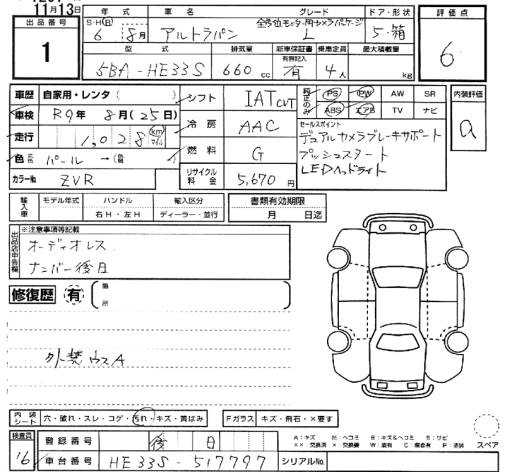 11月13日
出品番号
1
年式
車名
グレード
ドア・形状
評価点
S・H(R) 6年 8月
アルトラパン
全方位モニター用カメラパッケージ
L
5・箱
6
型式
排気量
新車保証書
乗車定員
最大積載量
5BA-HE33S
660 cc
有無記入
有
4人
kg
車歴 自家用・レンタ( )
シフト
IAT CVT
PS PW AW SR
内装評価
車検 R9年 8月(25日)
ABS エアB TV ナビ
a
冷房
AAC
セールスポイント
走行 1,028 km マイル
デュアルカメラブレーキサポート
燃料
G
プッシュスタート
色 元色 パール → 色替
LEDヘッドライト
カラーNo. ZVR
リサイクル料金
5,670円
輸入車
モデル年式
ハンドル
輸入区分
書類有効期限
右H・左H
ディーラー・並行
月 日迄
出品店申告欄
※注意事項等記載
オーディオレス
ナンバー後日
修復歴 有
箇所
外装ウスA
内装シート
穴・破れ・スレ・コゲ・汚れ・キズ・黄ばみ
Fガラス キズ・飛石・×要す
検査員
16
登録番号
後日
A:キズ U:ヘコミ B:キズ&ヘコミ S:サビ
××:交換済 ×:交換要 W:補有 C:腐食有 P:塗装
スペア
車台番号
HE33S-517797
シリアルNo.